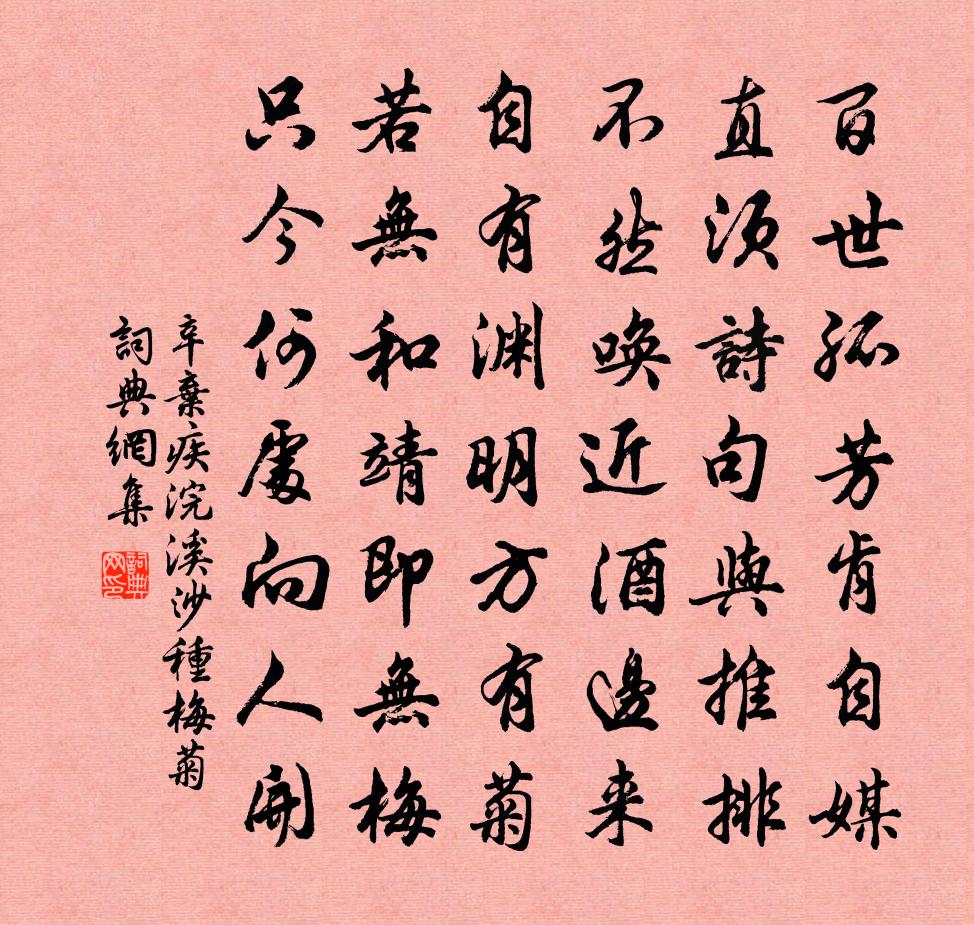 百世孤芳肯自媒
直須詩句與推排
不然喚近酒邊来
自有渊明方有菊
若無和靖即無梅
只今何處向人開
辛棄疾浣溪沙種梅菊
詞典網集
詞典网印